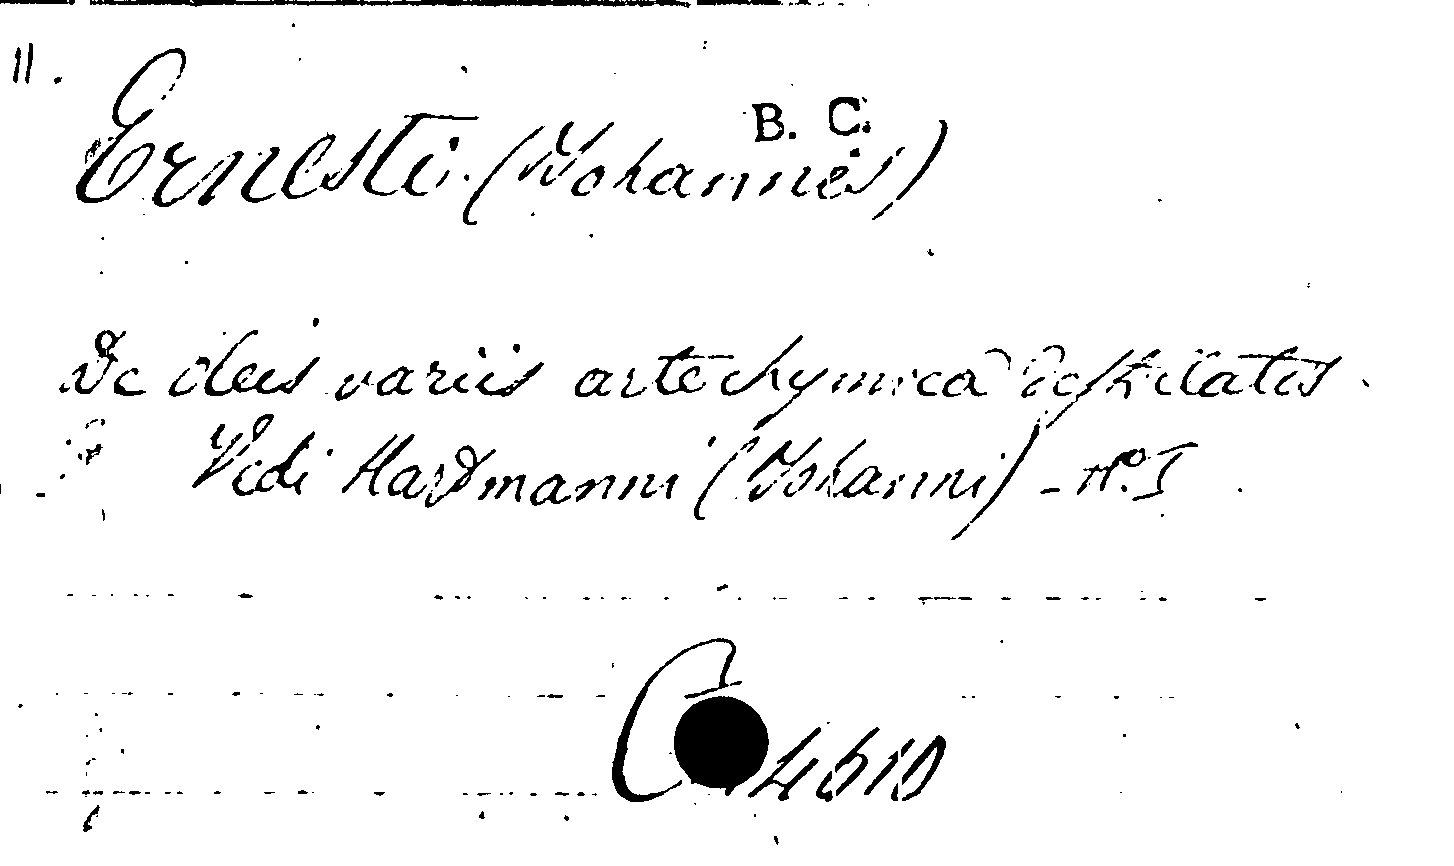 11.
B. C.
Ernesti (Johannes)
De oleis variis arte chymica destilatis.
Vedi Hartmanni (Johanni) - N.° I
C 4510